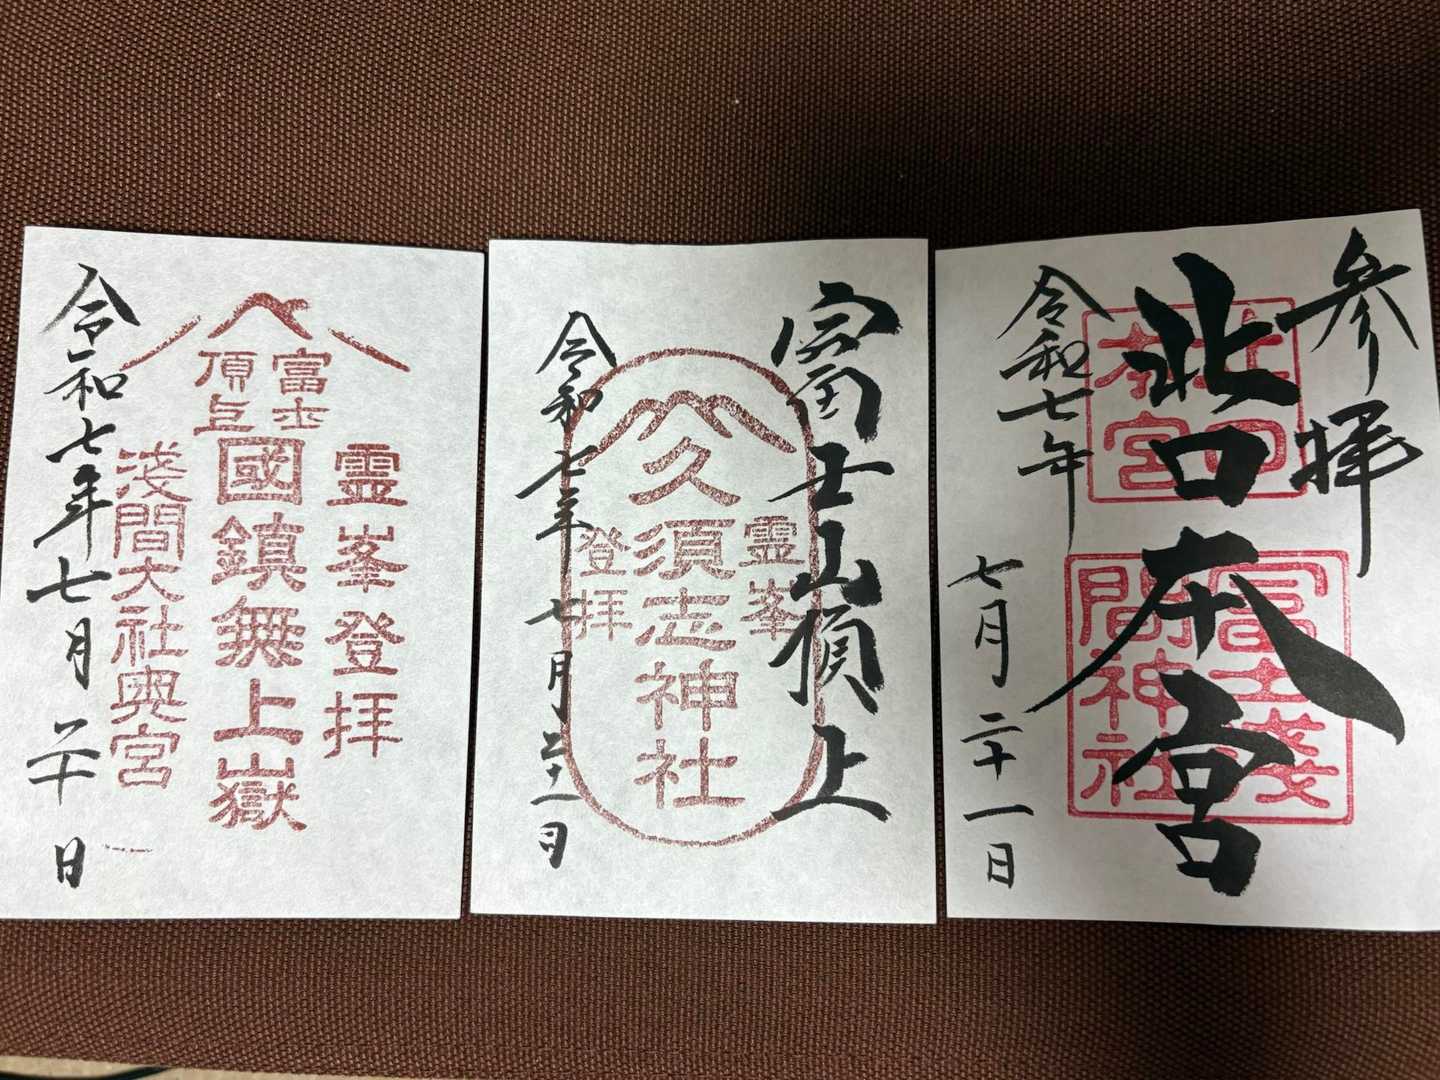 霊峯登拝
富士
頂上
國鎮無上嶽
淺間大社奥宮
令和七年七月二十日
富士山頂上
霊峯
久須志神社
登拝
令和七年七月二十一日
参拝
北口本宮
北口
本宮
冨士淺
間神社
令和七年
七月二十一日